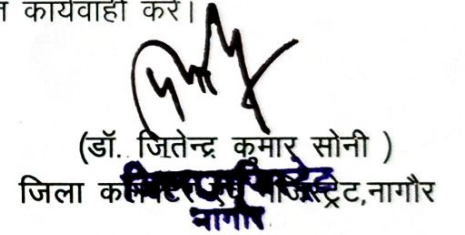 त कार्यवाही करें।
(डॉ. जितेन्द्र कुमार सोनी )
जिला कलेक्टर एवं मजिस्ट्रेट,नागौर
नागौर